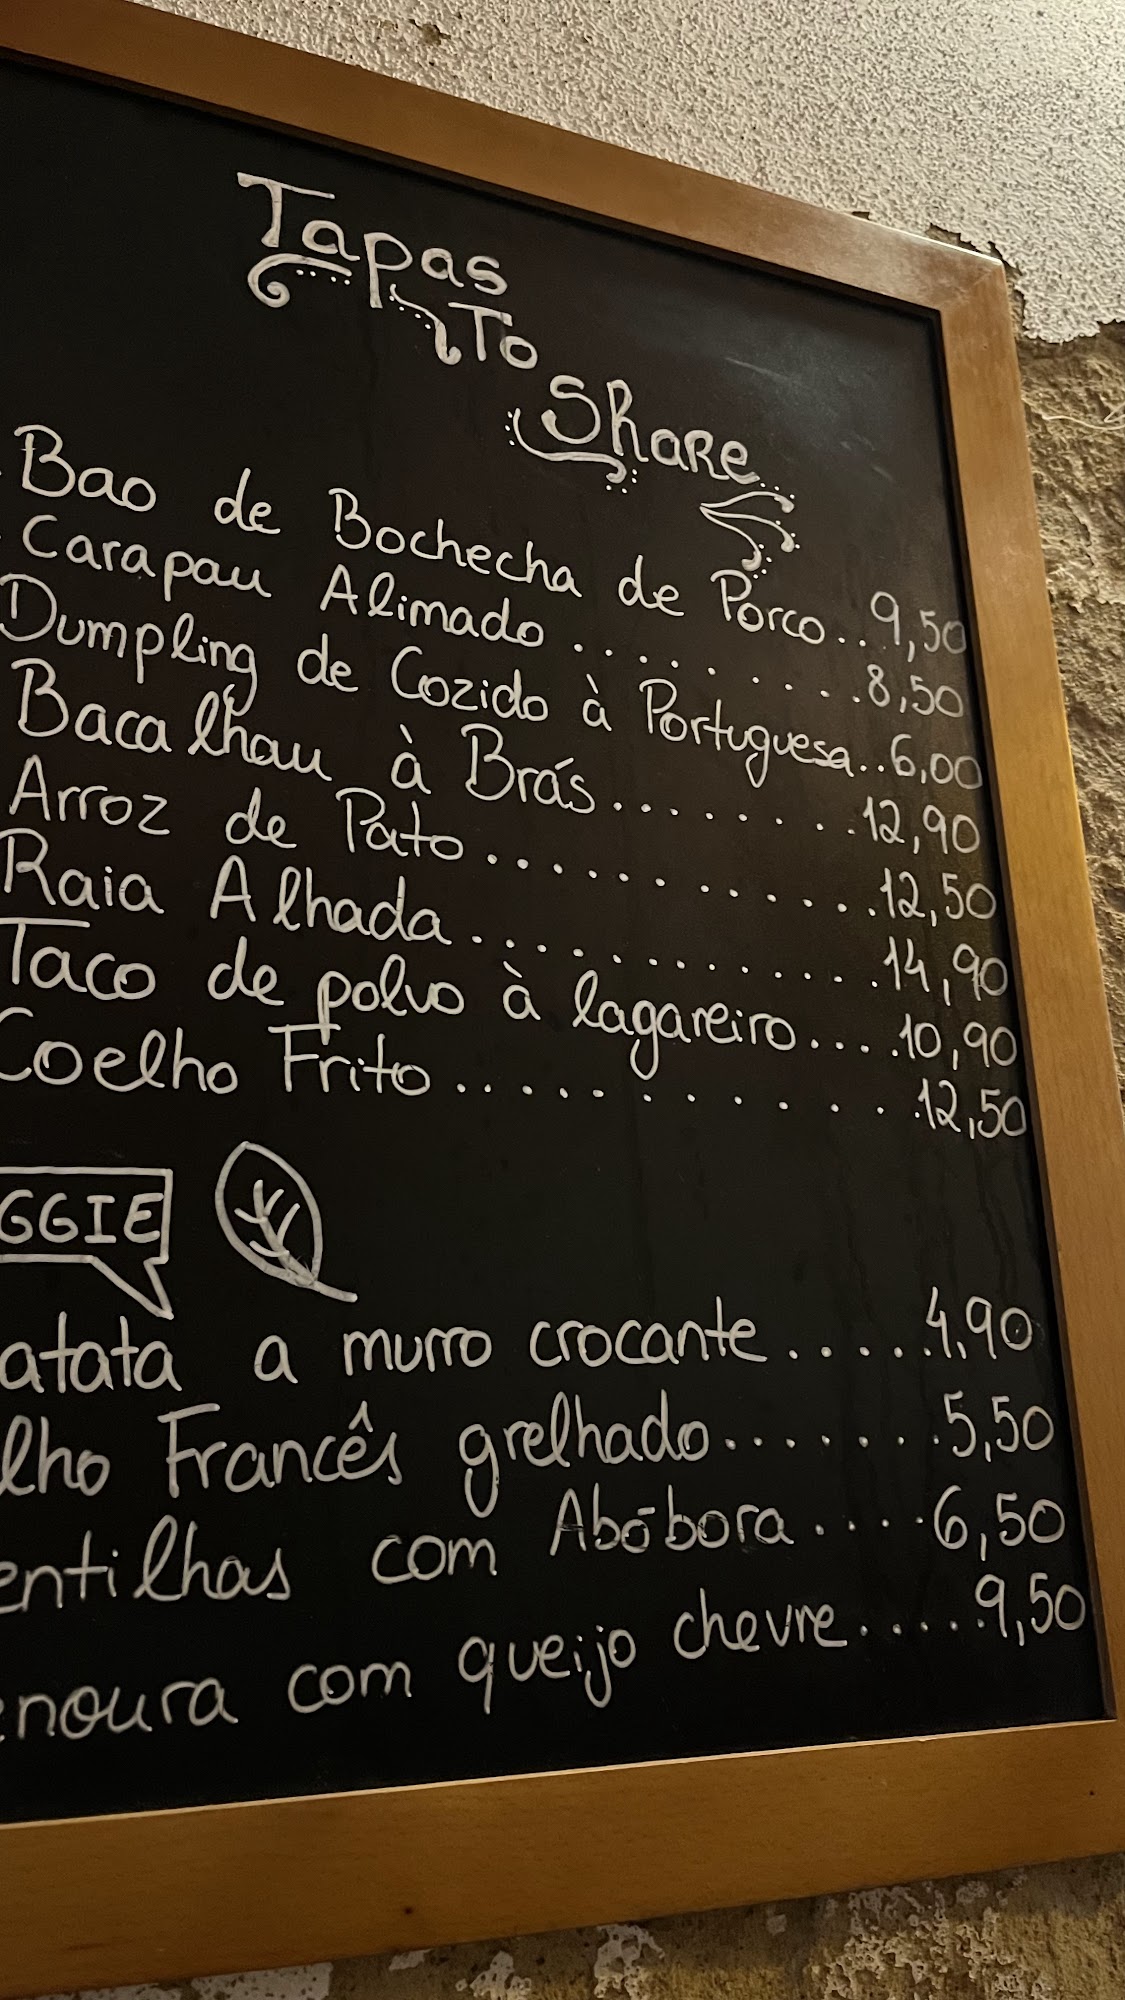 Tapas
To
Share
Bao de Bochecha de Porco..9,50
Carapau Alimado..........8,50
Dumpling de Cozido à Portuguesa..6,00
Bacalhau à Brás.........12,90
Arroz de Pato............12,50
Raia Alhada............14,90
Taco de polvo à lagareiro....10,90
Coelho Frito............12,50
GGIE
atata a murro crocante.....4,90
lho Francês grelhado.......5,50
entilhas com Abóbora....6,50
enoura com queijo chevre.....9,50